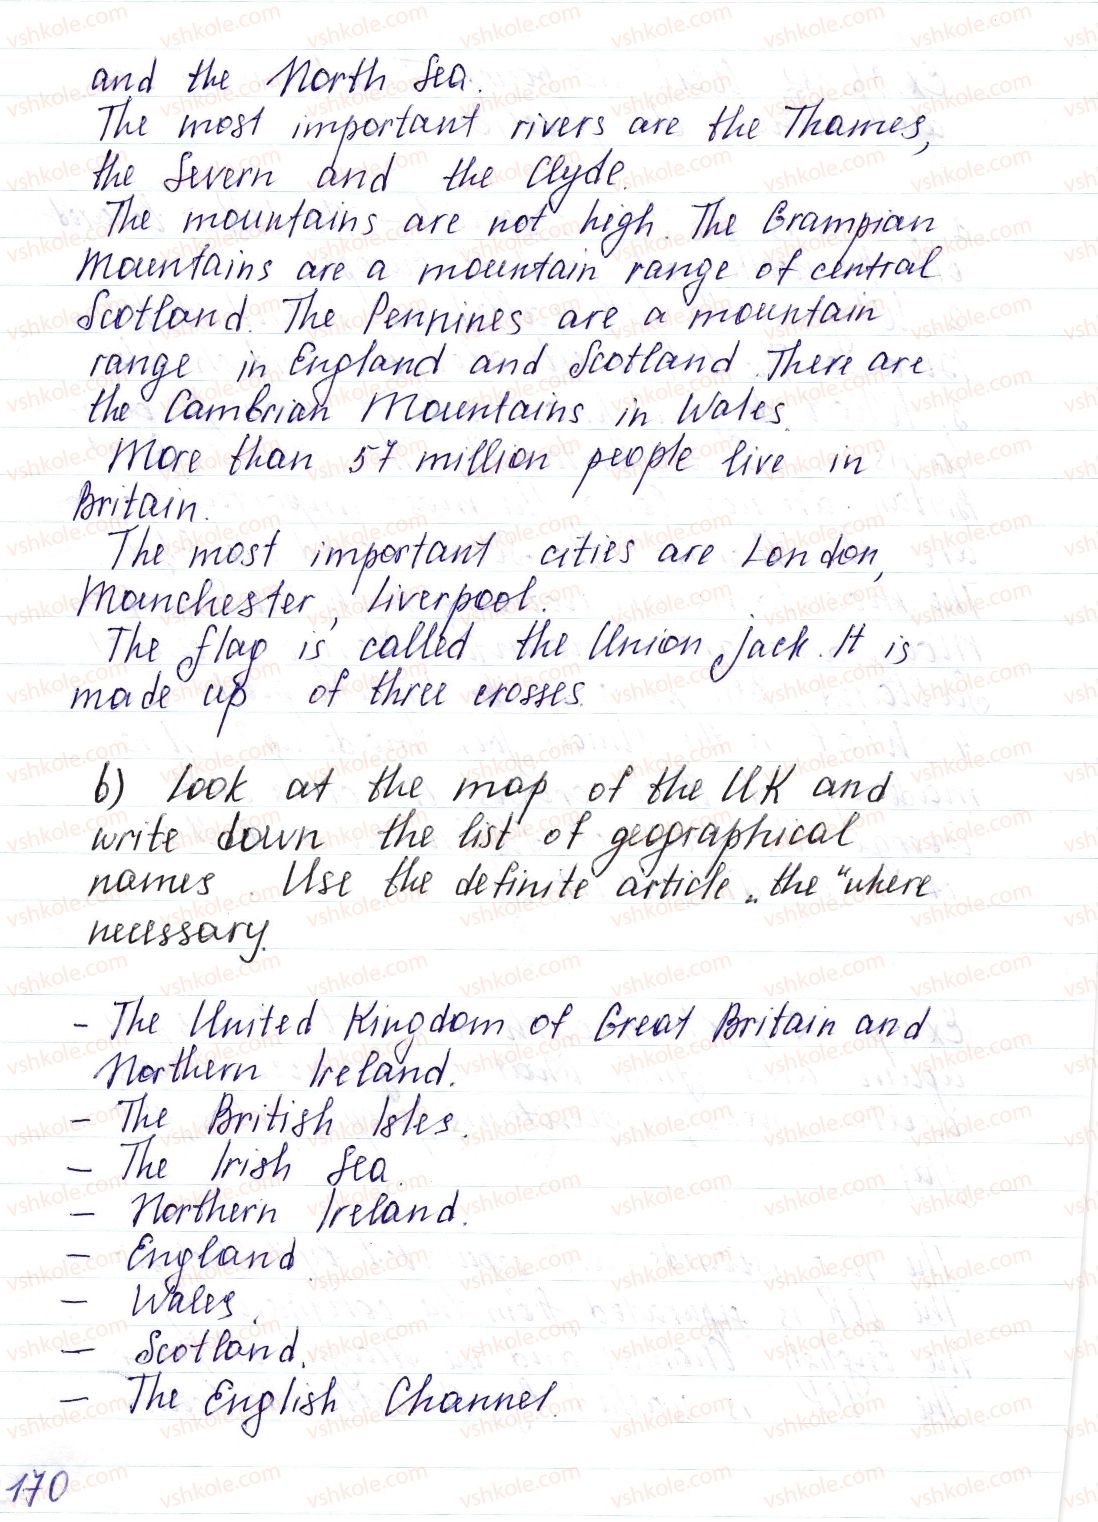 and the North Sea.
The most important rivers are the Thames,
the Severn and the Clyde.
The mountains are not high. The Grampian
Mountains are a mountain range of central
Scotland. The Pennines are a mountain
range in England and Scotland. There are
the Cambrian Mountains in Wales.
More than 57 million people live in
Britain.
The most important cities are London,
Manchester, Liverpool.
The flag is called the Union Jack. It is
made up of three crosses.
b) Look at the map of the UK and
write down the list of geographical
names. Use the definite article „the“ where
necessary.
- The United Kingdom of Great Britain and
Northern Ireland.
- The British Isles.
- The Irish Sea.
- Northern Ireland.
- England.
- Wales.
- Scotland.
- The English Channel.
170
vshkole.com